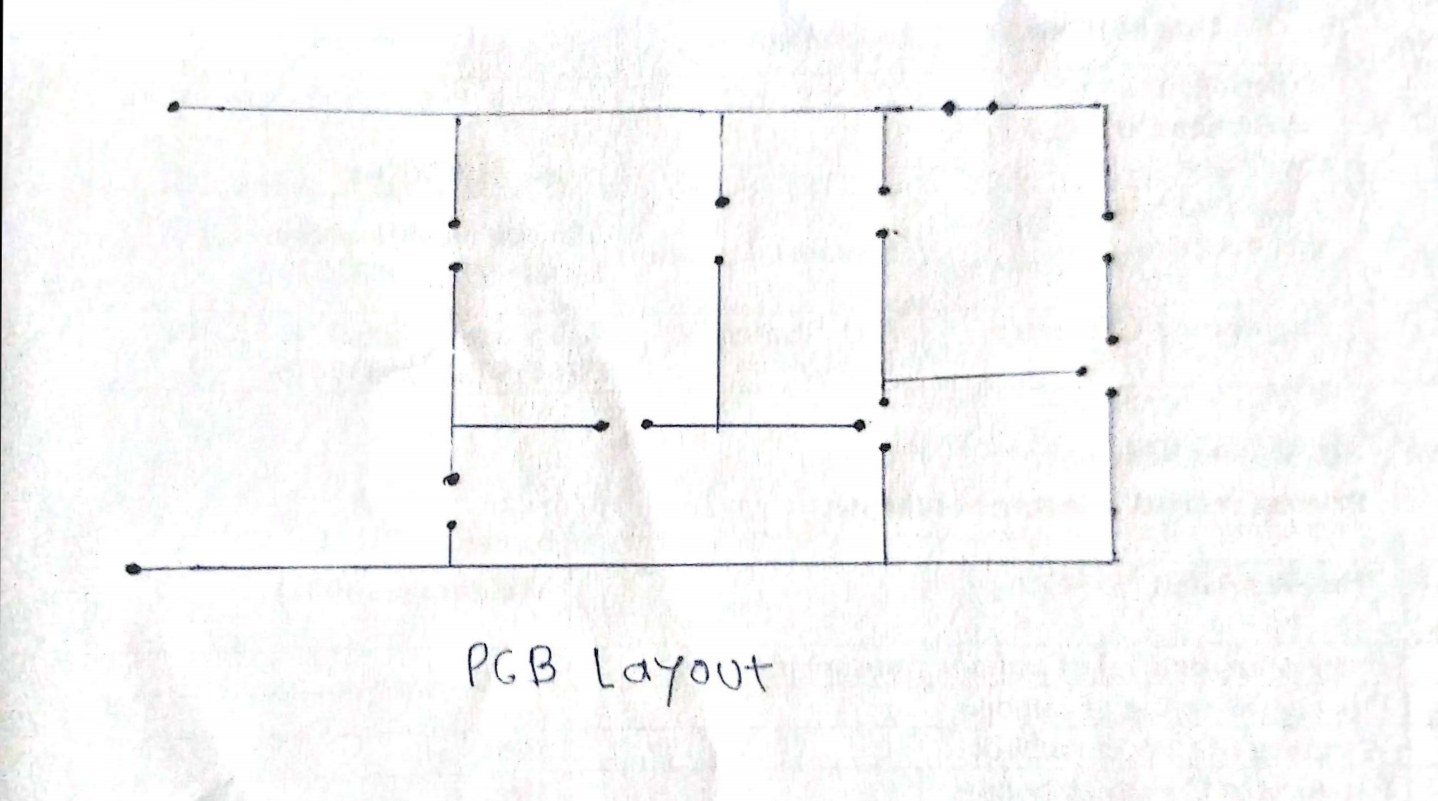 PCB Layout